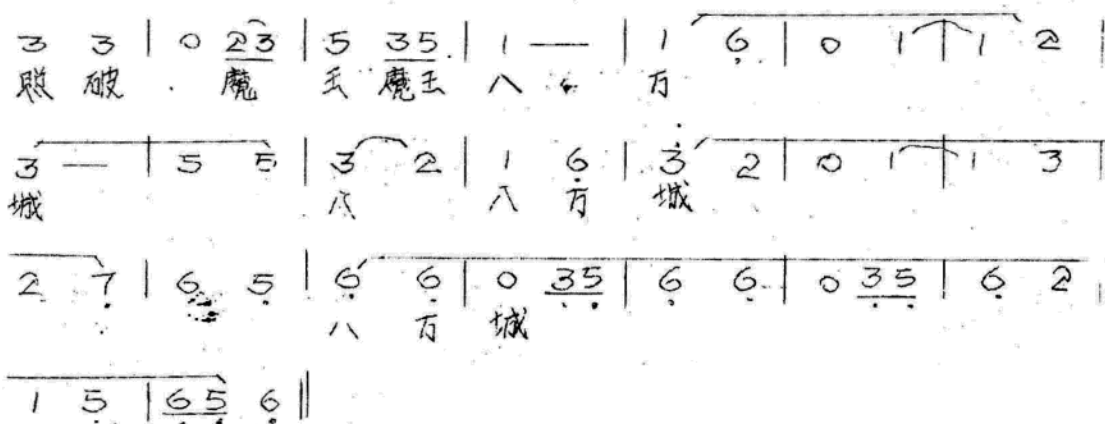 3 3 | 0 23 | 5 35 | 1 — | 1 6 | 0 1 | 1 2
照 破 魔 王 魔王 八 万
3 — | 5 5 | 3 2 | 1 6 | 3 2 | 0 1 | 1 3
城 八 八 万 城
2 7 | 6 5 | 6 6 | 0 35 | 6 6 | 0 35 | 6 2
八 万 城
1 5 | 65 6 ||